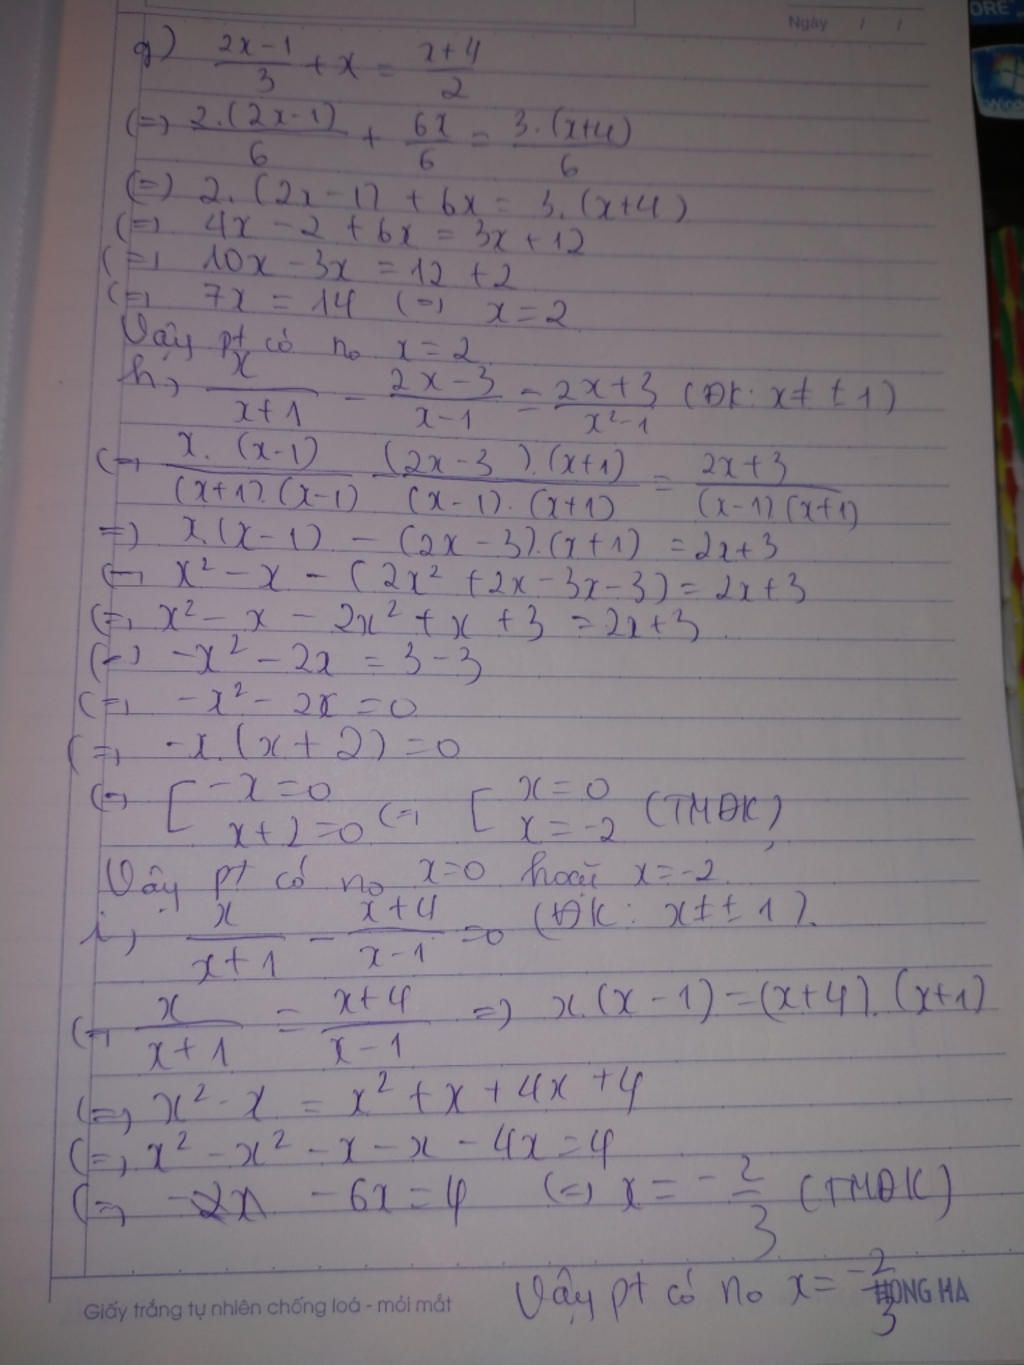 Ngày / /
g) (2x-1)/3 + x = (x+4)/2
(=) 2.(2x-1)/6 + 6x/6 = 3.(x+4)/6
(=) 2.(2x-1) + 6x = 3.(x+4)
(=) 4x - 2 + 6x = 3x + 12
(=) 10x - 3x = 12 + 2
(=) 7x = 14 (=) x = 2
Vậy pt có no x = 2
h) x/(x+1) - (2x-3)/(x-1) = (2x+3)/(x²-1) (ĐK: x ≠ ±1)
(=) x.(x-1)/(x+1).(x-1) - (2x-3).(x+1)/(x-1).(x+1) = (2x+3)/(x-1)(x+1)
=) x.(x-1) - (2x-3).(x+1) = 2x+3
(=) x² - x - (2x² + 2x - 3x - 3) = 2x+3
(=) x² - x - 2x² + x + 3 = 2x+3
(=) -x² - 2x = 3 - 3
(=) -x² - 2x = 0
(=) -x.(x+2) = 0
(=) [ -x = 0 (=) [ x = 0 (TMĐK)
x+2 = 0 x = -2
Vậy pt có no x=0 hoặc x=-2
i) x/(x+1) - (x+4)/(x-1) = 0 (ĐK: x ≠ ±1).
(=) x/(x+1) = (x+4)/(x-1) =) x.(x-1) = (x+4).(x+1)
(=) x² - x = x² + x + 4x + 4
(=) x² - x² - x - x - 4x = 4
(=) -6x = 4 (=) x = -2/3 (TMĐK)
Vậy pt có no x = -2/3
Giấy trắng tự nhiên chống loá - mỏi mắt
HONG HA